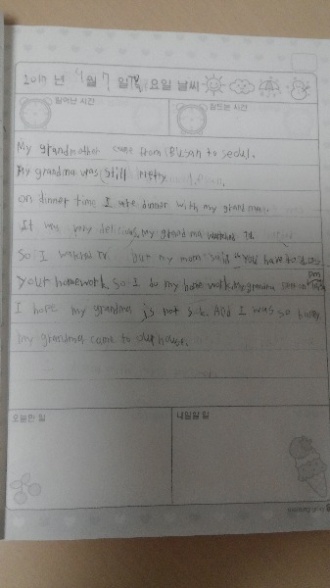 2017 년 월 7 일 요일 날씨
일어난 시간 잠드는 시간
My grandmother came from Busan to seoul.
My grandma was still pretty
on dinner time I ate dinner with my grandma
It was very delicious, my grandma watched TV
So I watched TV but my mom said "You have to do
Your homework so I do my home work.
I hope my grandma is not sick. And I was so happy
my grandma came to our house.
오늘한 일 내일할 일